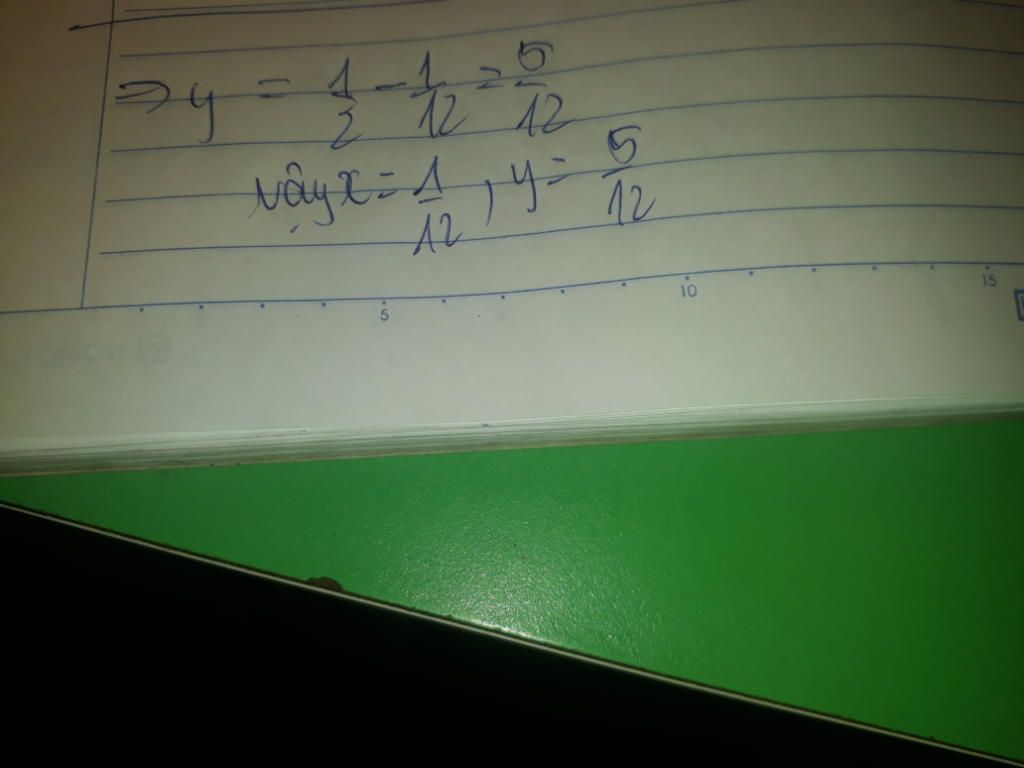 ⇒ y = 1/2 - 1/12 = 5/12
Vậy x = 1/12, y = 5/12
5 10 15